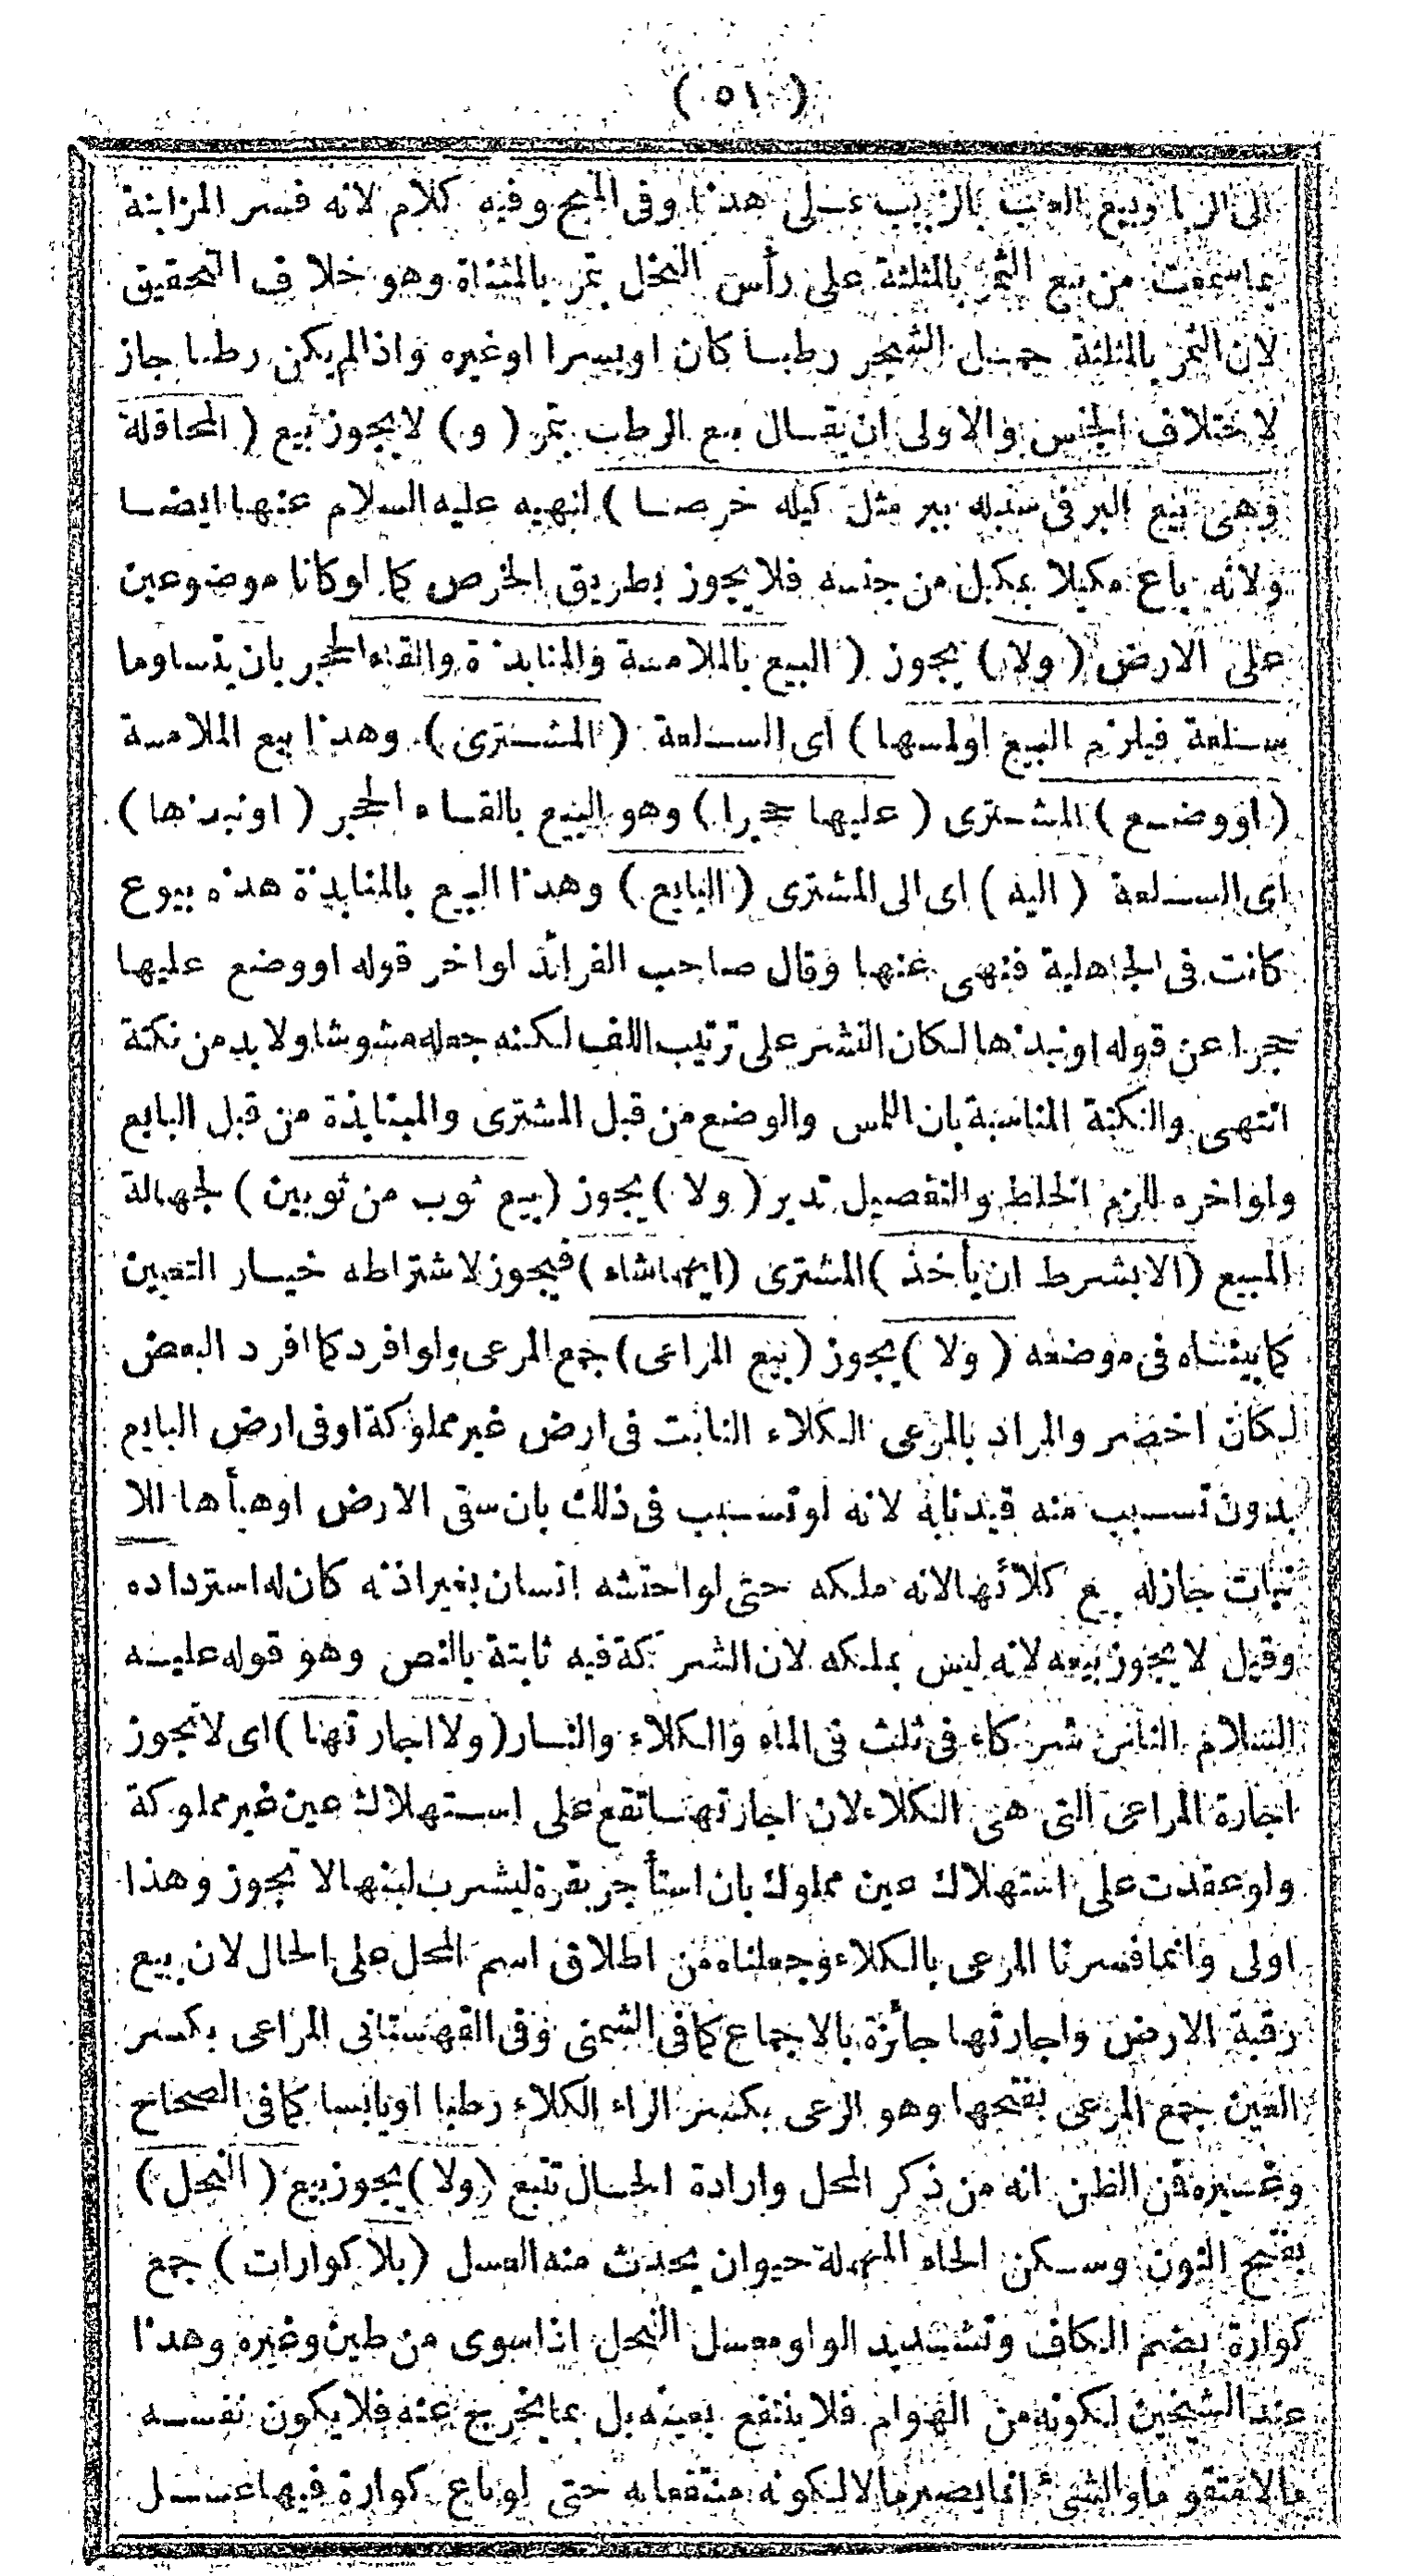 ( ٥١ )
الى الربا وبيع العنب بالزبيب على هذا وفى المنح وفيه كلام لانه فسر المزابنة
بما سمعت من بيع الثمر بالمثلثة على رأس النخل بتمر بالمثناة وهو خلاف التحقيق
لان الثمر بالمثلثة حمل الشجر رطبا كان او بسرا او غيره واذالم يكن رطبا جاز
لاختلاف الجنس والاولى ان يقال بيع الرطب بتمر ( و ) لا يجوز بيع ( المحاقلة
وهى بيع البر فى سنبله ببر مثل كيله خرصا ) لنهيه عليه السلام عنها ايضا
ولانه باع مكيلا بمكيل من جنسه فلا يجوز بطريق الخرص كما لو كانا موضوعين
على الارض ( ولا ) يجوز ( البيع بالملامسة والمنابذة والقاء الحجر بان يتساوما
سلعة فيلزم البيع لو لمسها ) اى السلعة ( المشترى ) وهذا بيع الملامسة
( او وضع ) المشترى ( عليها حجرا ) وهو البيع بالقاء الحجر ( او نبذها )
اى السلعة ( اليه ) اى الى المشترى ( البايع ) وهذا البيع بالمنابذة هذه بيوع
كانت فى الجاهلية فنهى عنها وقال صاحب الفرائد لو اخر قوله او وضع عليها
حجرا عن قوله او نبذها لكان النشر على ترتيب اللف لكنه جعله مشوشا ولا بد من نكتة
انتهى والنكتة المناسبة بان اللمس والوضع من قبل المشترى والمنابذة من قبل البايع
ولو اخره للزم الخلط والتفصيل تدبر ( ولا ) يجوز ( بيع ثوب من ثوبين ) لجهالة
المبيع ( الا بشرط ان يأخذ ) المشترى ( ايهما شاء ) فيجوز لاشتراطه خيار التعيين
كما بيناه فى موضعه ( ولا ) يجوز ( بيع المراعى ) جمع المرعى ولو افرد كما افرد البعض
لكان اخصر والمراد بالمرعى الكلاء النابت فى ارض غير مملوكة او فى ارض البايع
بدون تسبب منه قيدنا به لانه لو تسبب فى ذلك بان سقى الارض او هيأها للا
نبات جاز له بيع كلائها لانه ملكه حتى لو احتشه انسان بغير اذنه كان له استرداده
وقيل لا يجوز بيعه لانه ليس بملكه لان الشركة فيه ثابتة بالنص وهو قوله عليه
السلام الناس شركاء فى ثلث فى الماء والكلاء والنار ( ولا اجارتها ) اى لا تجوز
اجارة المراعى التى هى الكلاء لان اجارتها تقع على استهلاك عين غير مملوكة
ولو عقدت على استهلاك عين مملوك بان استأجر بقرة ليشرب لبنها لا تجوز وهذا
اولى وانما فسرنا المرعى بالكلاء وجعلناه من اطلاق اسم المحل على الحال لان بيع
رقبة الارض واجارتها جائزة بالاجماع كما فى الشمنى وفى القهستانى المراعى بكسر
العين جمع المرعى بفتحها وهو الرعى بكسر الراء الكلاء رطبا او يابسا كما فى الصحاح
وغيره فمن الظن انه من ذكر المحل وارادة الحال تتبع ( ولا ) يجوز بيع ( النحل )
بفتح النون وسكن الحاء المهملة حيوان يحدث منه العسل ( بلا كوارات ) جمع
كوارة بضم الكاف وتشديد الواو معسل النحل اذا سوى من طين وغيره وهذا
عند الشيخين لكونه من الهوام فلا ينتفع بعينه بل بما يخرج عنه فلا يكون نفسه
مالا متقوما والشئ انما يصير مالا لكونه منتفعا به حتى لو باع كوارة فيها عسل